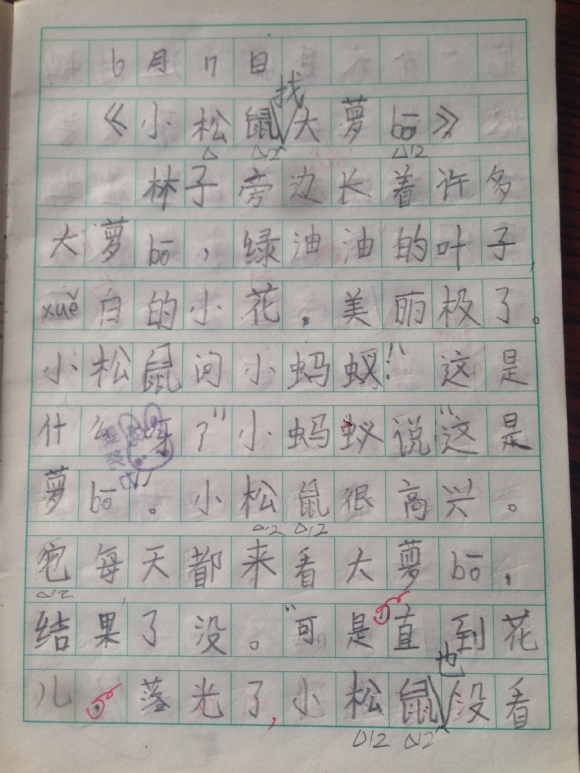 6月17日
《小松鼠找大萝bō》
林子旁边长着许多
大萝bō，绿油油的叶子，
xuě白的小花，美丽极了。
小松鼠问小蚂蚁："这是
什么呀？"小蚂蚁说"这是
萝bō"。小松鼠很高兴。
每天都来看大萝bō，
结果了没。"可是直到花
儿落光了，小松鼠也没看